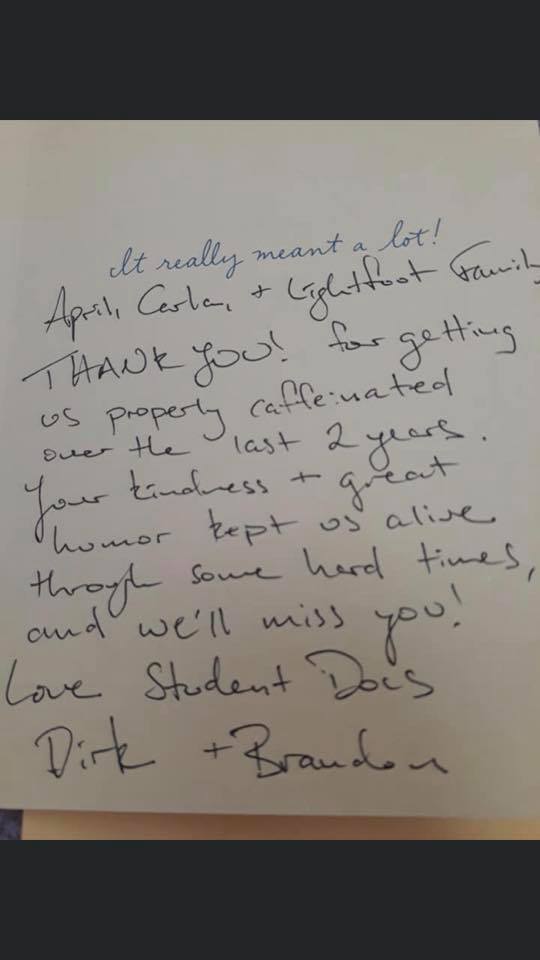 It really meant a lot!
April, Carla, + Lightfoot Family
THANK YOU! for getting
us properly caffeinated
over the last 2 years.
Your kindness + great
humor kept us alive
through some hard times,
and we'll miss you!
Love Student Docs
Dirk + Brandon